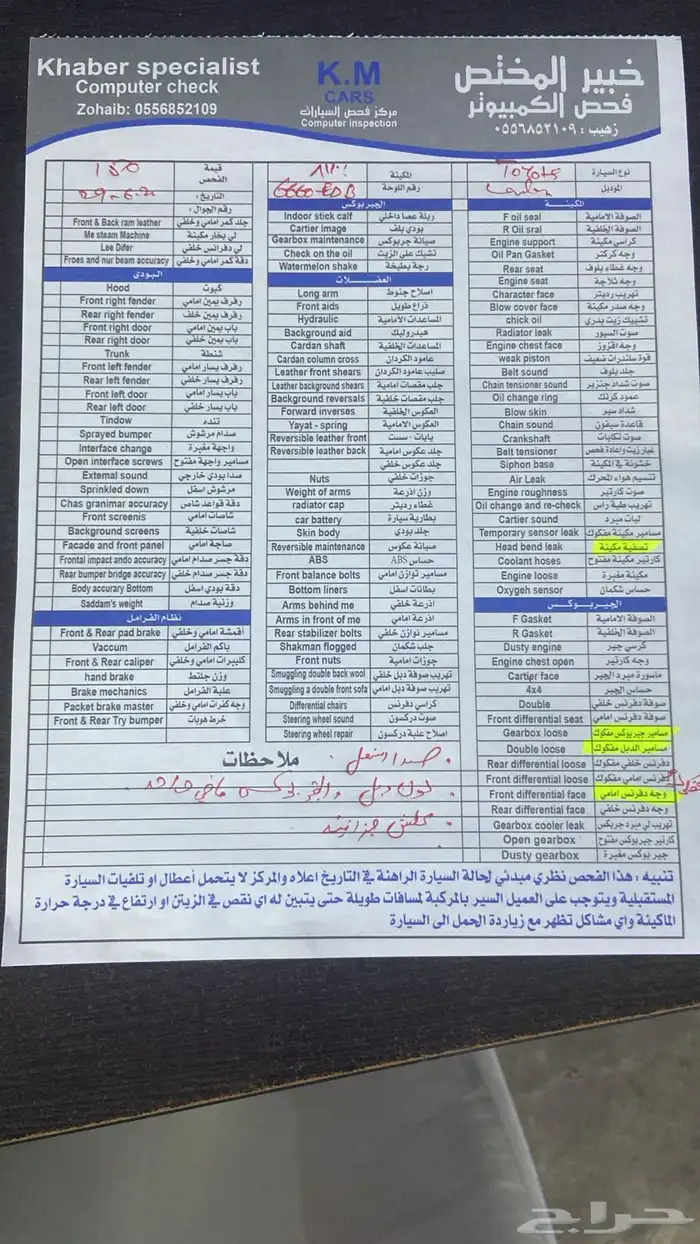 Khaber specialist
Computer check
Zohaib: 0556852109
K.M
CARS
مركز فحص السيارات
Computer inspection
خبير المختص
فحص الكمبيوتر
زهيب : ٠٥٥٦٨٥٢١٠٩
نوع السيارة Toyota
الموديل
المكينة
رقم اللوحة
قيمة الفحص 150
التاريخ:
رقم الجوال:
المكينــة
F oil seal الصوفة الامامية
R Oil sral الصوفة الخلفية
Engine support كراسي مكينة
Oil Pan Gasket وجه كركتر
Rear seat وجه غطاء بلوف
Engine seat وجه ثلاجة
Character face تهريب رديتر
Blow cover face وجه صدر مكينة
chick oil تشييك زيت بدري
Radiator leak صوت السيور
Engine chest face وجه افزوز
weak piston قوة سلندرات ضعيف
Belt sound جلد بلوف
Chain tensioner sound صوت شداد جنزير
Oil change ring عمود كرنك
Blow skin شداد سير
Chain sound قاعدة سيفون
Crankshaft صوت تكايات
Belt tensioner غيار زيت واعادة فحص
Siphon base خشونة في المكينة
Air Leak تنسيم هواء المحرك
Engine roughness صوت كارتير
Oil change and re-check تهريب طبة راس
Cartier sound ليات مبرد
Temporary sensor leak مسامير مكينة مفكوك
Head bend leak تصفية مكينة
Coolant hoses كارتير مكينة مفتوح
Engine loose مكينة مغبرة
Oxygeh sensor حساس شكمان
الجيـربـوكـس
F Gasket الصوفة الامامية
R Gasket الصوفة الخلفية
Dusty engine كرسي جير
Engine chest open وجه كارتير
Cartier face ماسورة مبرد الجير
4x4 حساس الجير
Double صوفة دفرنس خلفي
Front differential seat صوفة دفرنس امامي
Gearbox loose مسامير جيربوكس مفكوك
Double loose مسامير الدبل مفكوك
Rear differential loose دفرنس خلفي مفكوك
Front differential loose دفرنس امامي مفكوك
Front differential face وجه دفرنس امامي
Rear differential face وجه دفرنس خلفي
Gearbox cooler leak تهريب لي مبرد جربكس
Open gearbox كارتير جيربوكس مفتوح
Dusty gearbox جير بوكس مغبرة
الجيربوكس
Indoor stick calf ربلة عصا داخلي
Cartier image بودي بلف
Gearbox maintenance صيانة جربوكس
Check on the oil تشيك على الزيت
Watermelon shake رجة بطيخة
العضـــلات
Long arm اصلاح جنوط
Front aids ذراع طويل
Hydraulic المساعدات الامامية
Background aid هيدروليك
Cardan shaft المساعدات الخلفية
Cardan column cross عامود الكردان
Leather front shears صليب عامود الكردان
Leather background shears جلب مقصات امامية
Background reversals جلب مقصات خلفية
Forward inverses العكوس الخلفية
Yayat - spring العكوس الامامية
Reversible leather front يايات - سست
Reversible leather back جلد عكوس امامية
جلد عكوس خلفي
Nuts جوزات خلفي
Weight of arms وزن اذرعة
radiator cap غطاء رديتر
car battery بطارية سيارة
Skin body جلد بودي
Reversible maintenance صيانة عكوس
ABS حساس ABS
Front balance bolts مسامير توازن امامي
Bottom liners بطانات اسفل
Arms behind me اذرعة خلفي
Arms in front of me اذرعة امامي
Rear stabilizer bolts مسامير توازن خلفي
Shakman flogged جلب شكمان
Front nuts جوزات امامية
Smuggling double back wool تهريب صوفة دبل خلفي
Smuggling a double front sofa تهريب صوفة دبل امامي
Differential chairs كراسي دفرنس
Steering wheel sound صوت دركسون
Steering wheel repair اصلاح علبة دركسون
Front & Back ram leather جلد كمر امامي وخلفي
Me steam Machine لي بخار مكينة
Lee Difer لي دفرانس خلفي
Froes and nur beam accuracy دقة كمر امامي وخلفي
البودي
Hood كبوت
Front right fender رفرف يمين امامي
Rear right fender رفرف يمين خلف
Front right door باب يمين امامي
Rear right door باب يمين خلفي
Trunk شنطة
Front left fender رفرف يسار امامي
Rear left fender رفرف يسار خلفي
Front left door باب يسار امامي
Rear left door باب يسار خلفي
Tindow تنده
Sprayed bumper صدام مرشوش
Interface change واجهة مغيرة
Open interface screws مسامير واجهة مفتوح
External sound صدا بودي خارجي
Sprinkled down مرشوش اسفل
Chas granimar accuracy دقة قواعد شاص
Front screenis شاصات امامي
Background screens شاصات خلفية
Facade and front panel صاجة امامي
Frontal impact ando accuracy دقة جسر صدام امامي
Rear bumper bridge accuracy دقة جسر صدام خلفي
Body accurary Bottom دقة بودي اسفل
Saddam's weight وزنية صدام
نظام الفرامل
Front & Rear pad brake أقمشة امامي وخلفي
Vaccum باكم الفرامل
Front & Rear caliper كليبرات امامي وخلفي
hand brake وزن جلنط
Brake mechanics علبة الفرامل
Packet brake master وجه كفرات امامي وخلفي
Front & Rear Try bumper خرط هوبات
ملاحظات
تنبيه : هذا الفحص نظري مبدئي لحالة السيارة الراهنة في التاريخ اعلاه والمركز لا يتحمل أعطال او تلفيات السيارة
المستقبلية ويتوجب على العميل السير بالمركبة لمسافات طويلة حتى يتبين له اي نقص في الزيتن او ارتفاع في درجة حرارة
الماكينة واي مشاكل تظهر مع زياردة الحمل الى السيارة
حراج